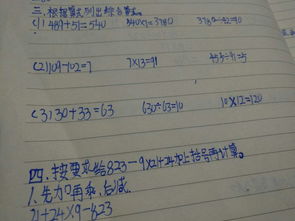 三、根据算式列出综合算式。
(1) 489+51=540 540×7=3780 3780-42=90
(2)109-102=7 7×13=91 455÷91=5
(3)30+33=63 630÷63=10 10×12=120
四、按要求给823-9×21+24加上括号再计算。
1、先加再乘,后减
21+24×9-823